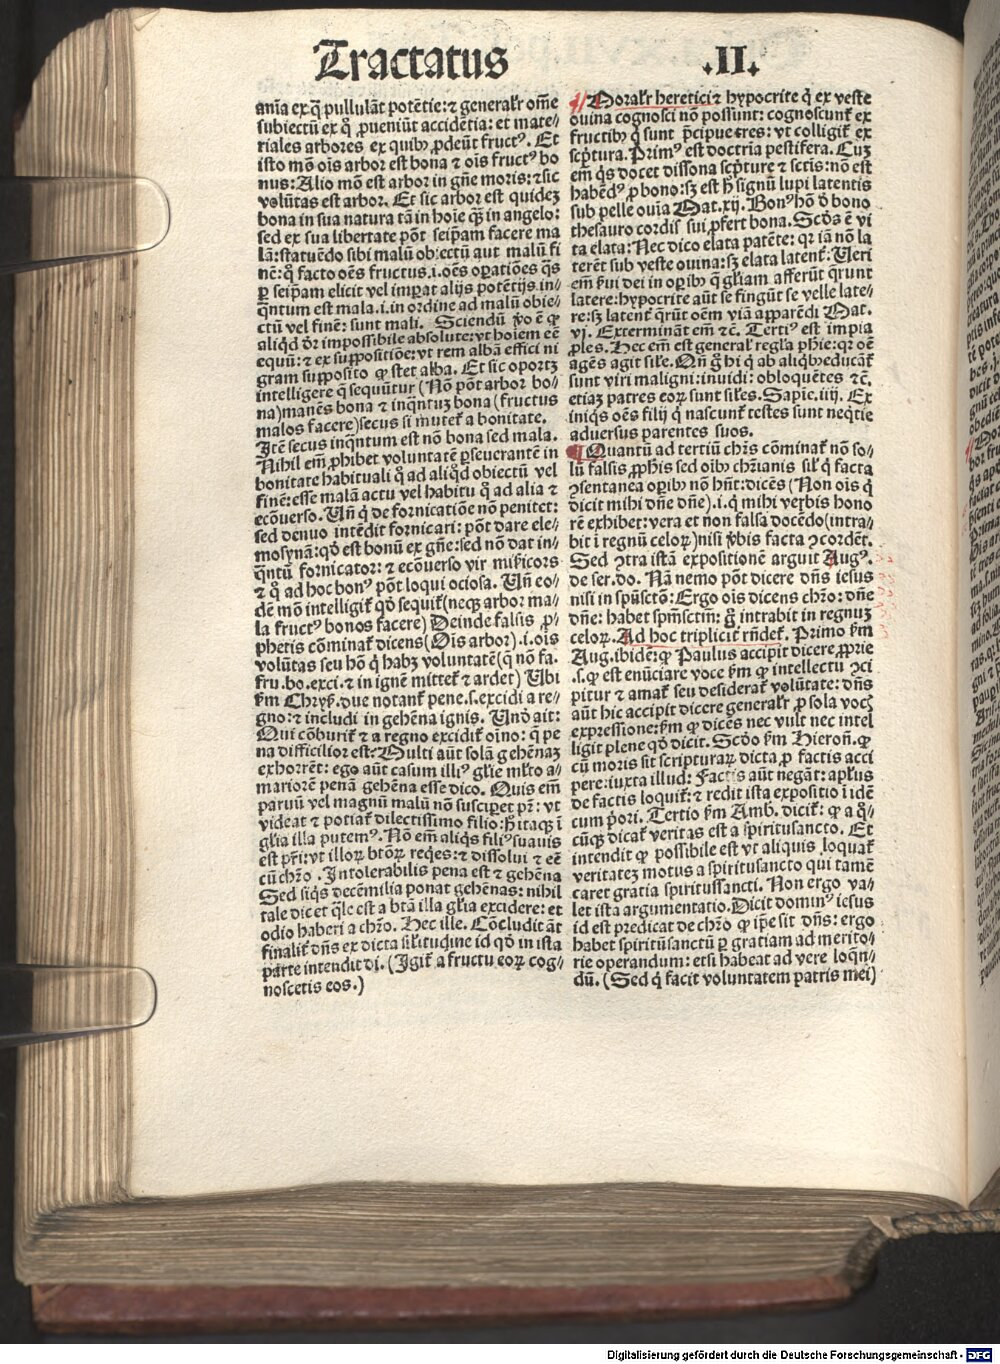 Tractatus .II.
anīa ex q̄ pullulāt potētie: ⁊ generalr̄ om̄e
subiectū ex q̊ ꝓueniūt accidētia: et mate⸗
riales arbores ex quibꝰ ꝓdeūt fructꝰ. Et
isto mō ois arbor est bona ⁊ ois fructꝰ bo
nus: Alio mō est arbor in gn̄e moris: ⁊ sic
volūtas est arbor. Et sic arbor est quideꝫ
bona in sua natura tā in hoīe qꝫ̄ in angelo:
sed ex sua libertate pōt seip̄am facere ma
lā: statuēdo sibi malū obiectū aut malū fi
nē: q̊ facto oēs fructus .i. oēs oꝑatiōes q̄s
ꝑ seip̄am elicit vel imꝑat alijs potētijs in⸗
qꝫ̄tum est mala .i. in ordine ad malū obie⸗
ctū vel finē: sunt mali. Sciendū ꝟo ē ꝙ
aliqd̄ dr̄ impossibile absolute: vt hoīem eē
equū: ⁊ ex suppositiōe: vt rem albā effici ni
gram supposito ꝙ stet alba. Et sic oportꝫ
intelligere q̄ sequūtur (Nō pōt arbor bo⸗
na) manēs bona ⁊ inqꝫ̄tuꝫ bona (fructus
malos facere) secus si mutet̄ a bonitate.
Itē secus inqꝫ̄tum est nō bona sed mala.
Nihil em̄ ꝓhibet voluntatē ꝑseuerantē in
bonitate habituali q̊ ad aliqd̄ obiectū vel
finē: esse malā actu vel habitu q̊ ad alia ⁊
ecōuerso. Vn̄ q̄ de fornicatiōe nō penitet:
sed denuo intēdit fornicari: pōt dare ele⸗
mosynā: qd̄ est bonū ex gn̄e: sed nō dat in⸗
qꝫ̄tū fornicator: ⁊ ecōuerso vir mīsicors
⁊ q̊ ad hoc bonꝰ pōt loqui ociosa. Vn̄ eo⸗
dē mō intelligit̄ qd̄ sequit̄ (necꝫ arbor ma⸗
la fructꝰ bonos facere) Deinde falsis ꝓ⸗
phetis cōminat̄ dicens (Ois arbor) .i. ois
volūtas seu hō q̄ habꝫ voluntatē (q̄ nō fa.
fru. bo. exci. ⁊ in ignē mittet̄ ⁊ ardet) Vbi
ẜm Chryẜ. due notant̄ pene .s. excidi a re⸗
gno: ⁊ includi in gehēna ignis. Vnd̄ ait:
Qui cōburit̄ ⁊ a regno excidit̄ oīno: q̄ pe
na difficilior est: Multi aūt solā gehēnaꝫ
exhorrēt: ego aūt casum illiꝰ glīe ml̄to a⸗
mariorē penā gehēna esse dico. Quis em̄
paruū vel magnū malū nō susciperet pr̄: vt
videat ⁊ potiat̄ dilectissimo filio: h̄ itaqꝫ ī
glīa illa putemꝰ. Nō em̄ aliq̄s filiꝰ suauis
est pr̄i: vt illoꝝ btōꝝ reqes: ⁊ dissolui ⁊ eē
cū chr̄o. Intolerabilis pena est ⁊ gehēna
Sed siq̄s decēmilia ponat gehēnas: nihil
tale dicet q̄le est a btā illa glīa excidere: et
odio haberi a chr̄o. Hec ille. Cōcludit āt
finalit̄ dn̄s ex dicta sīlitudine id qd̄ in ista
parte intendit di. (Igit̄ a fructu eoꝝ cog⸗
noscetis eos.)
Moralr̄ heretici ⁊ hypocrite q̄ ex veste
ouina cognosci nō possunt: cognoscunt̄ ex
fructibꝰ q̄ sunt p̄cipue tres: vt colligit̄ ex
scp̄tura. Primꝰ est doctrīa pestifera. Cuꝫ
em̄ q̄s docet dissona scp̄ture ⁊ sctīs: nō est
habēdꝰ ꝓ bono: sꝫ est h̄ signū lupi latentis
sub pelle ouīa Mat. xij. Bonꝰ hō d̄ bono
thesauro cordis sui ꝓfert bona. Scds̄ ē vi
ta elata: Nec dico elata patēte: qr̄ iā nō la
terēt sub veste ouina: sꝫ elata latent̄. Veri
em̄ ẜui dei in oꝑibꝰ q̄ glīam afferūt q̄runt
latere: hypocrite aūt se fingūt se velle late⸗
re: sꝫ latent̄ q̄rūt oēm viā apparēdi Mat.
vj. Extermināt em̄ ⁊c̄. Tertiꝰ est impia
ꝓles. Hec em̄ est general̄ regl̄a phīe: qr̄ oē
agēs agit sil̄e. Qn̄ g̊ hi q̄ ab aliqbꝰ educāt̄
sunt viri maligni: inuidi: obloquētes ⁊c̄.
etiaꝫ patres eoꝝ sunt sil̄es. Sapie. iiij. Ex
iniq̄s oēs filij q̄ nascunt̄ testes sunt neq̄tie
aduersus parentes suos.
Quantū ad tertiū chr̄s cōminat̄ nō so⸗
lū falsis ꝓphīs sed oībꝰ chr̄ianis sil̄ q̄ facta
ꝯsentanea oꝑibꝰ nō hn̄t: dicēs (Non ois q̄
dicit mihi dn̄e dn̄e) .i. q̄ mihi verbis hono
rē exhibet: vera et non falsa docēdo (intra⸗
bit ī regnū celoꝝ) nisi ꝟbis facta ꝯcordēt.
Sed ꝯtra istā expositionē arguit Augꝰ.
de ser. do. Nā nemo pōt dicere dn̄s iesus
nisi in spūsctō: Ergo ois dicens chr̄o: dn̄e
dn̄e: habet spm̄sctm̄: g̊ intrabit in regnuꝫ
celoꝝ. Ad hoc tripliciter rn̄det̄. Primo ẜm
Aug. ibidē: ꝙ Paulus accipit dicere ꝓprie
.s. ꝙ est enūciare voce ẜm ꝙ intellectu ꝯci
pitur ⁊ amat̄ seu desiderat̄ volūtate: dn̄s
aūt hic accipit dicere generalr̄ ꝓ sola vocꝭ
expressione: ẜm ꝙ dicēs nec vult nec intel
ligit plene qd̄ dicit. Scd̄o ẜm Hieroñ. ꝙ
cū moris sit scripturaꝝ dicta ꝓ factis acci
pere: iuxta illud: Factis aūt negāt: apl̄us
de factis loquit̄: ⁊ redit ista expositio ī idē
cum pori. Tertio ẜm Amb. dicit̄: ꝙ a q̊⸗
cūqꝫ dicat̄ veritas est a spiritusancto. Et
intendit ꝙ possibile est vt aliquis loquat̄
veritatēꝫ motus a spiritusancto qui tamē
caret gratia spiritussancti. Non ergo va⸗
let ista argumentatio. Dicit dominꝰ iesus
id est predicat de chr̄o ꝙ ip̄e sit dn̄s: ergo
habet spiritūsanctū ꝑ gratiam ad merito⸗
rie operandum: etsi habeat ad vere loqn̄⸗
dū. (Sed q̄ facit voluntatem patris mei)
Digitalisierung gefördert durch die Deutsche Forschungsgemeinschaft - DFG